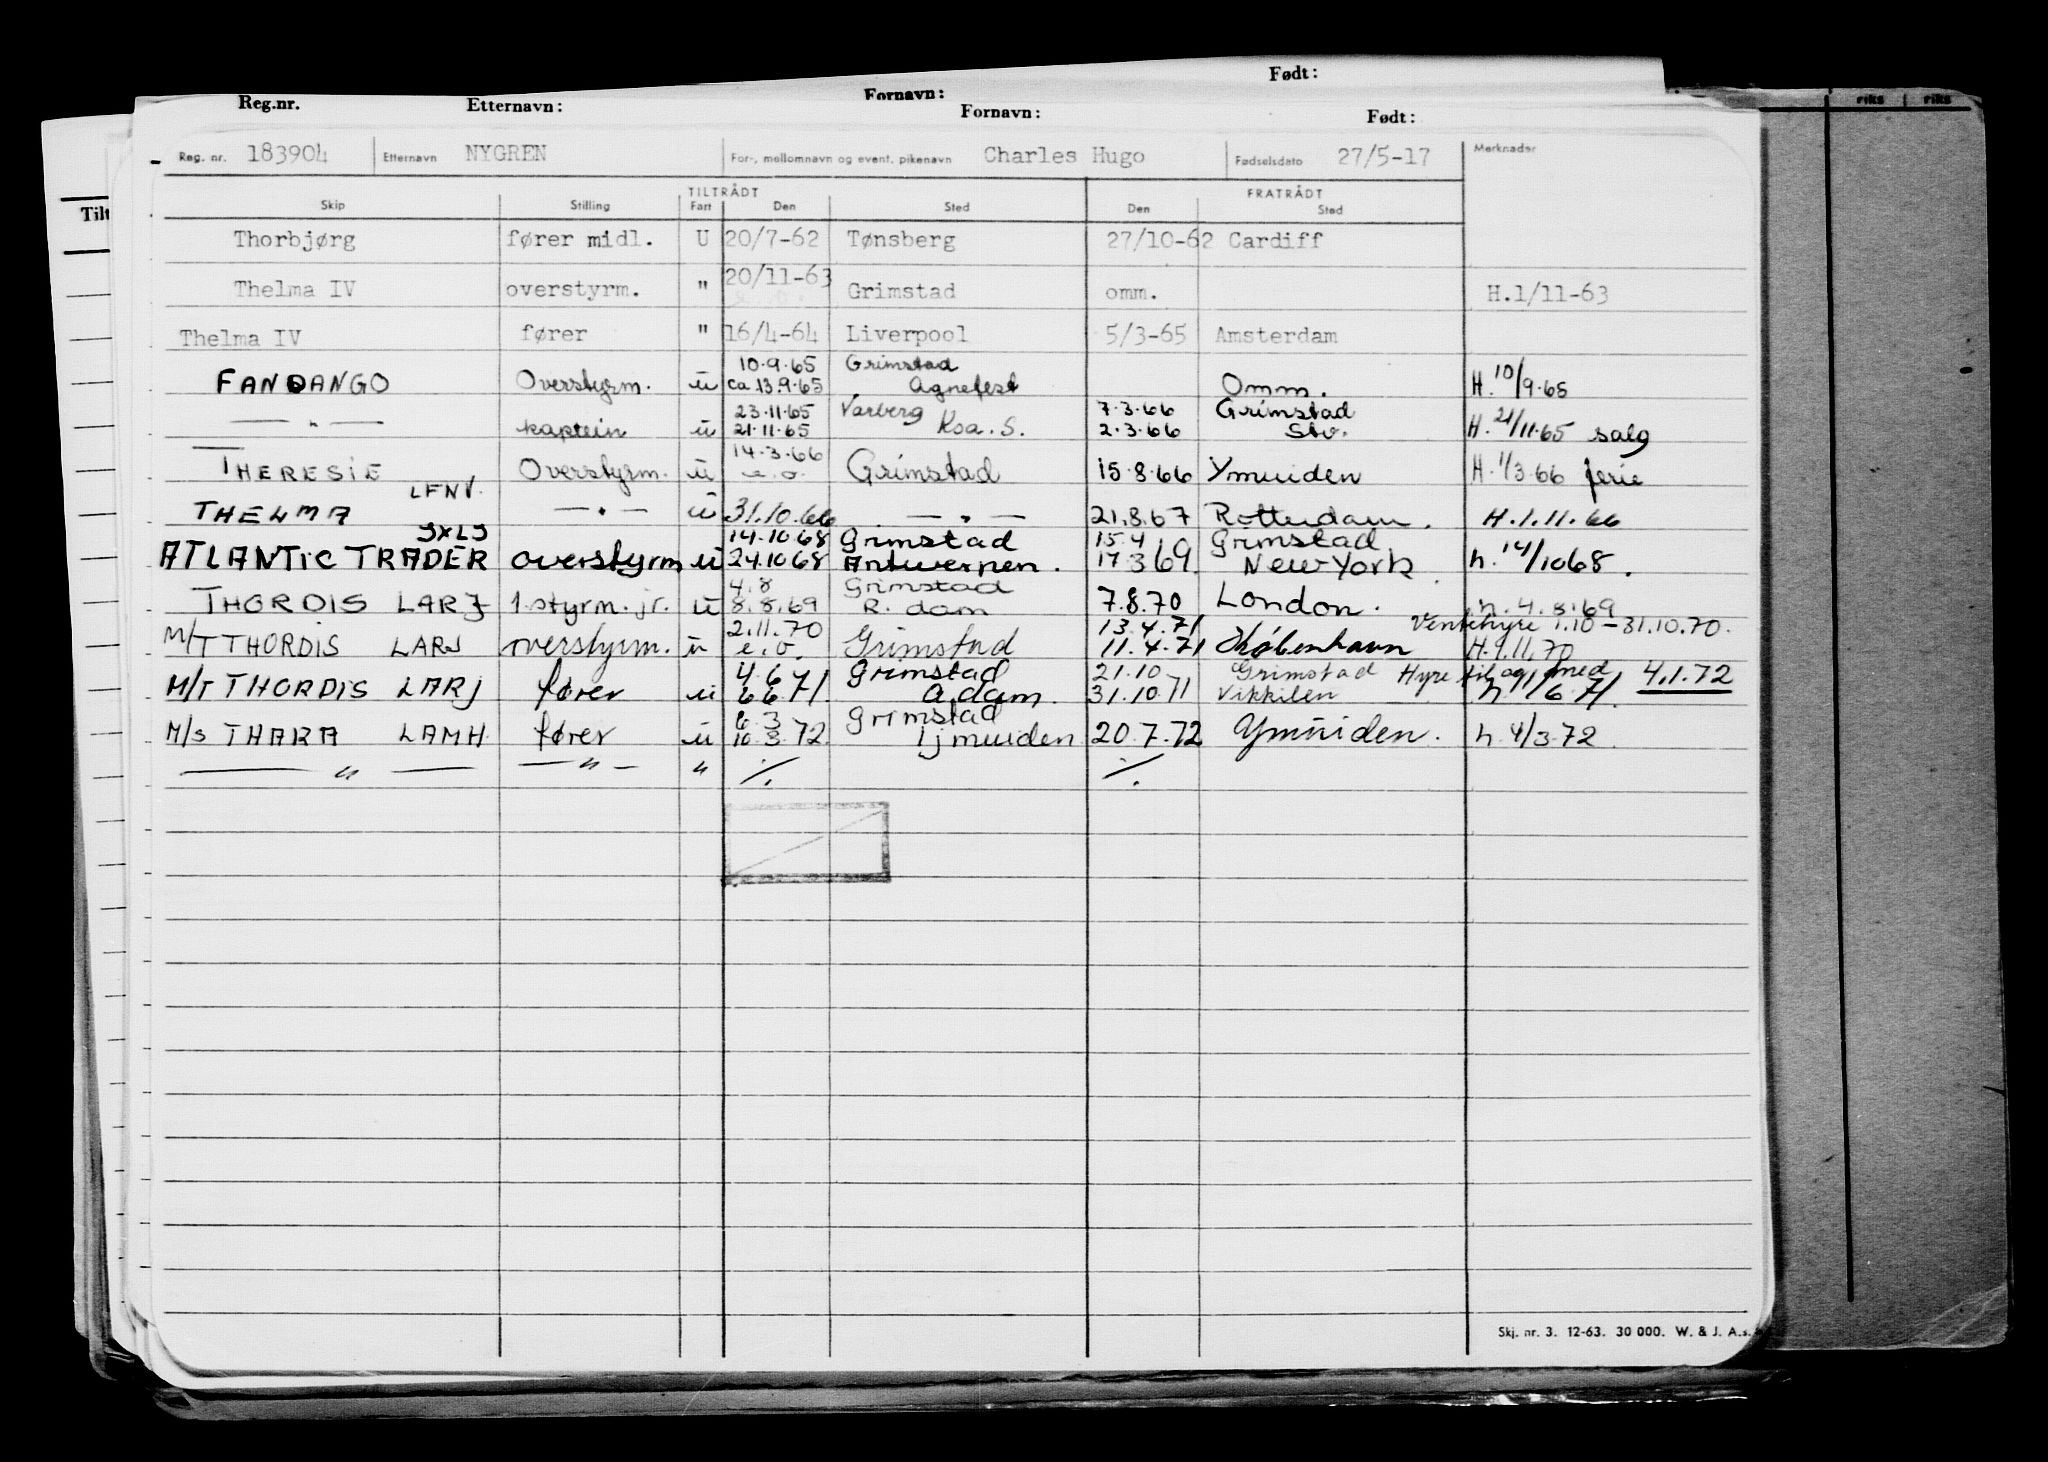 Født:
Fornavn:
riks riks
Reg.nr. Etternavn: Fornavn: Født:
Reg. nr. 183904 Etternavn NYGREN For-, mellomnavn og event. pikenavn Charles Hugo Fødselsdato 27/5-17 Merknader
TILTRÅDT FRATRÅDT
Skip Stilling Fart Den Sted Den Sted
Tilt
Thorbjørg fører midl. U 20/7-62 Tønsberg 27/10-62 Cardiff
20/11-63
Thelma IV overstyrm. " Grimstad omm. H.1/11-63
Thelma IV fører " 16/4-64 Liverpool 5/3-65 Amsterdam
10.9.65 Grimstad
FANDANGO Overstyrm. u ca 13.9.65 Agnefest Omm. H. 10/9.65
23.11.65 Varberg 7.3.66 Grimstad
— " — kaptein u 21.11.65 Ksa. S. 2.3.66 Stv. H. 21/11.65 salg
14.3.66
THERESIE Overstyrm. u e.o. Grimstad 15.8.66 Ymuiden H. 1/3.66 ferie
LFNV.
THELMA — " — u 31.10.66 — " — 21.8.67 Rotterdam. H.1.11.66
JXLJ 14.10 68 Grimstad 15.4 Grimstad
ATLANTIC TRADER overstyrm u 24.10 68 Antwerpen. 17 3 69. New York h. 14/10 68.
4.8 Grimstad
THORDIS LARJ 1.styrm. jr. u 8.8.69 R. dam 7.8.70 London. h. 4.8.69
2.11.70 13.4.71 Ventehyre 1.10 – 31.10.70.
M/T THORDIS LARJ overstyrm. u e.o. Grimstad 11.4.71 København H.1.11.70
4.6 Grimstad 21.10 Grimstad Hyre til og med 4.1.72
M/T THORDIS LARJ fører u 6 6 71 A.dam. 31.10.71 Vikkilen h. 1/6.71.
6.3 Grimstad
M/S THARA LAMH fører u 10.3.72. Ijmuiden 20.7.72 Ymuiden. h. 4/3.72.
— " — — " — " ./. ./.
Skj. nr. 3. 12-63. 30 000. W. & J. A.s.